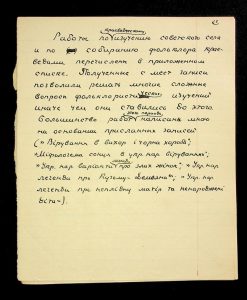 краеведческому
Работы по изучению советского села
и по собиранию фольклора крае-
ведами перечислены в приложенном
списке. Полученные с мест записи
позволили решать многие сложные
вопросы фольклористических изучений
иначе чем они ставились до этого.
Большинство работ написаны мною
на основании присланных записей
("Вірування в вихорі
"Міфологема сонця в укр. нар. віруваннях",
"Укр. нар. варіанти про злих жінок", "Укр. нар.
легенди про Кузьму и Демьяна", "Укр. нар.
легенди про неплідну матір та ненароджені
діти".)